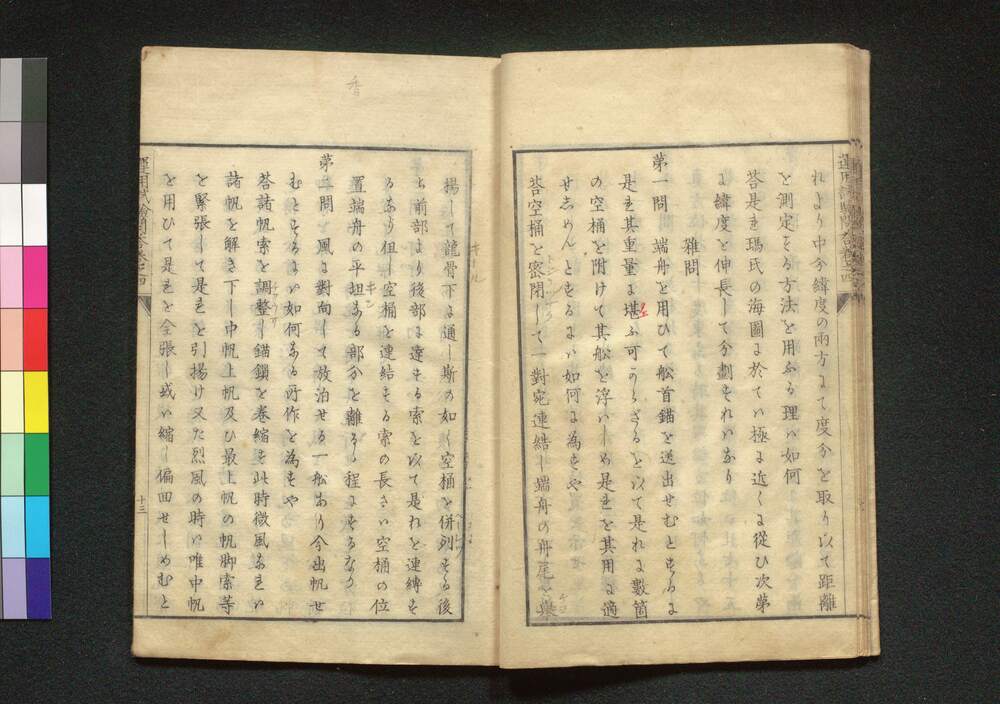 れより中分緯度の兩方にて度分を取り以て距離
を測定する方法を用ふる理ハ如何
答是ま瑪氏の海圖に於てハ極に近くに從ひ次第
に緯度と伸長して分劃すれハなり
雜問
第一問 端舟を用ひて舩首錨を送出せむとするに
是ま其重量に堪ふ可からざるを以て是れに數箇
の空桶を附けて其舩を浮ハしめ是ま を其用に適
せしめんとするにハ如何に為すや
答空桶を密閉して一對宛連結し端舟の舟尾に
揚して龍骨下に通し斯の如く空桶を併列する後
ち前部より後部に達する索を以て是れを連縛す
るあり但し空桶を連結する索の長さハ空桶の位
置端舟の平坦なる部分を離るゝ程にするなり
キール
キン
第二問 風に對向して放泊せる一舩あり今出帆せ
むとするにハ如何なる所作を為すや
答諸帆索を調整し錨鎖を卷縮す此時微風なれハ
諸帆を解き下し中帆上帆及ひ最上帆の帆脚索等
を緊張して是ま を引揚け又た烈風の時ハ唯中帆
を用ひて是ま を全張し或ハ縮し偏回せしめむと
十三
香